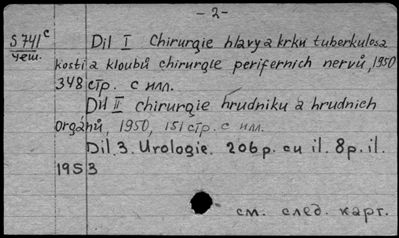 - 2 -
S 741 c
чеш.
Díl I Chirurgie hlavy a krku tuberkulosa
kosti a kloubů chirurgie periferních nervů, 1950
348 стр. с илл.
Díl II chirurgie hrudníku a hrudních
orgánů, 1950, 151 стр. с илл.
Díl. 3. Urologie. 206 p. cu il. 8 p. il.
1953
см. след. карт.